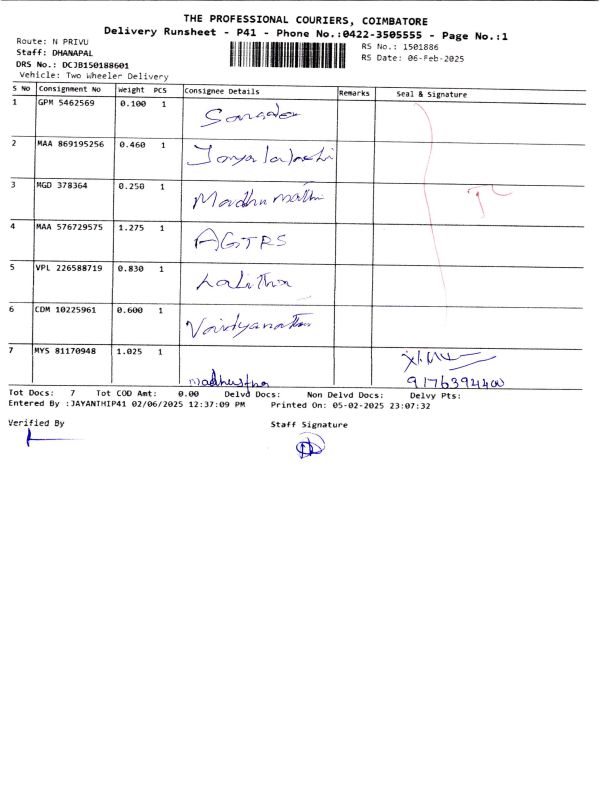 THE PROFESSIONAL COURIERS, COIMBATORE
Delivery Runsheet - P41 - Phone No.:0422-3505555 - Page No.:1
Route: N PRIVU
RS No.: 1501886
Staff: DHANAPAL
RS Date: 06-Feb-2025
DRS No.: DCJB150188601
Vehicle: Two Wheeler Delivery
S No Consignment No Weight PCS Consignee Details Remarks Seal & Signature
1 GPM 5462569 0.100 1
2 MAA 869195256 0.460 1
3 MGD 378364 0.250 1 Madhumathi
4 MAA 576729575 1.275 1 AGTRS
5 VPL 226588719 0.830 1 Lalitha
6 CDM 10225961 0.600 1 Vaidyanathan
7 MYS 81170948 1.025 1
Tot Docs: 7 Tot COD Amt: 0.00 Delvd Docs: Non Delvd Docs: Delvy Pts:
Entered By :JAYANTHIP41 02/06/2025 12:37:09 PM Printed On: 05-02-2025 23:07:32
Verified By Staff Signature